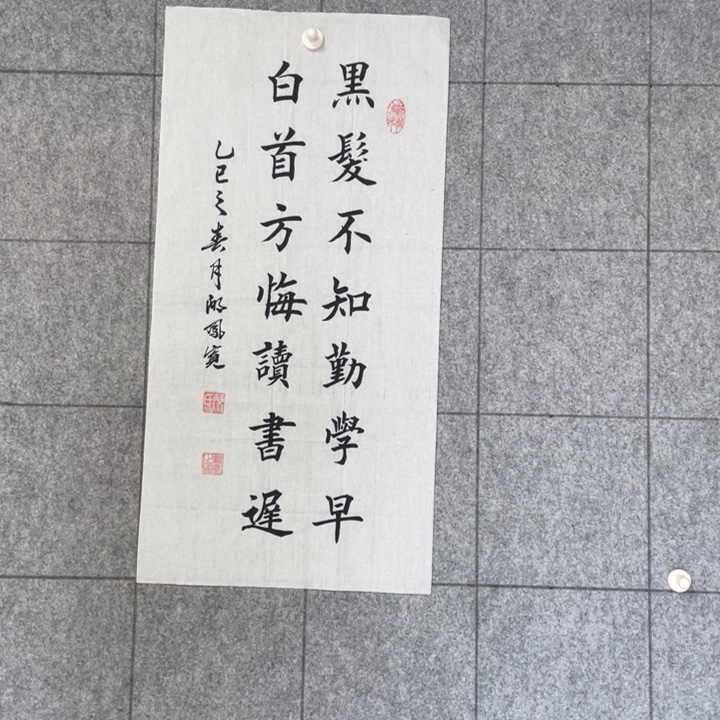 黑髮不知勤學早
白首方悔讀書遲
乙巳之春月鳳寬